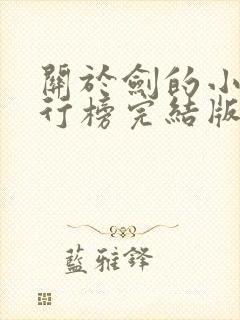 關於劍的小
行榜完結版
藍雅鋒